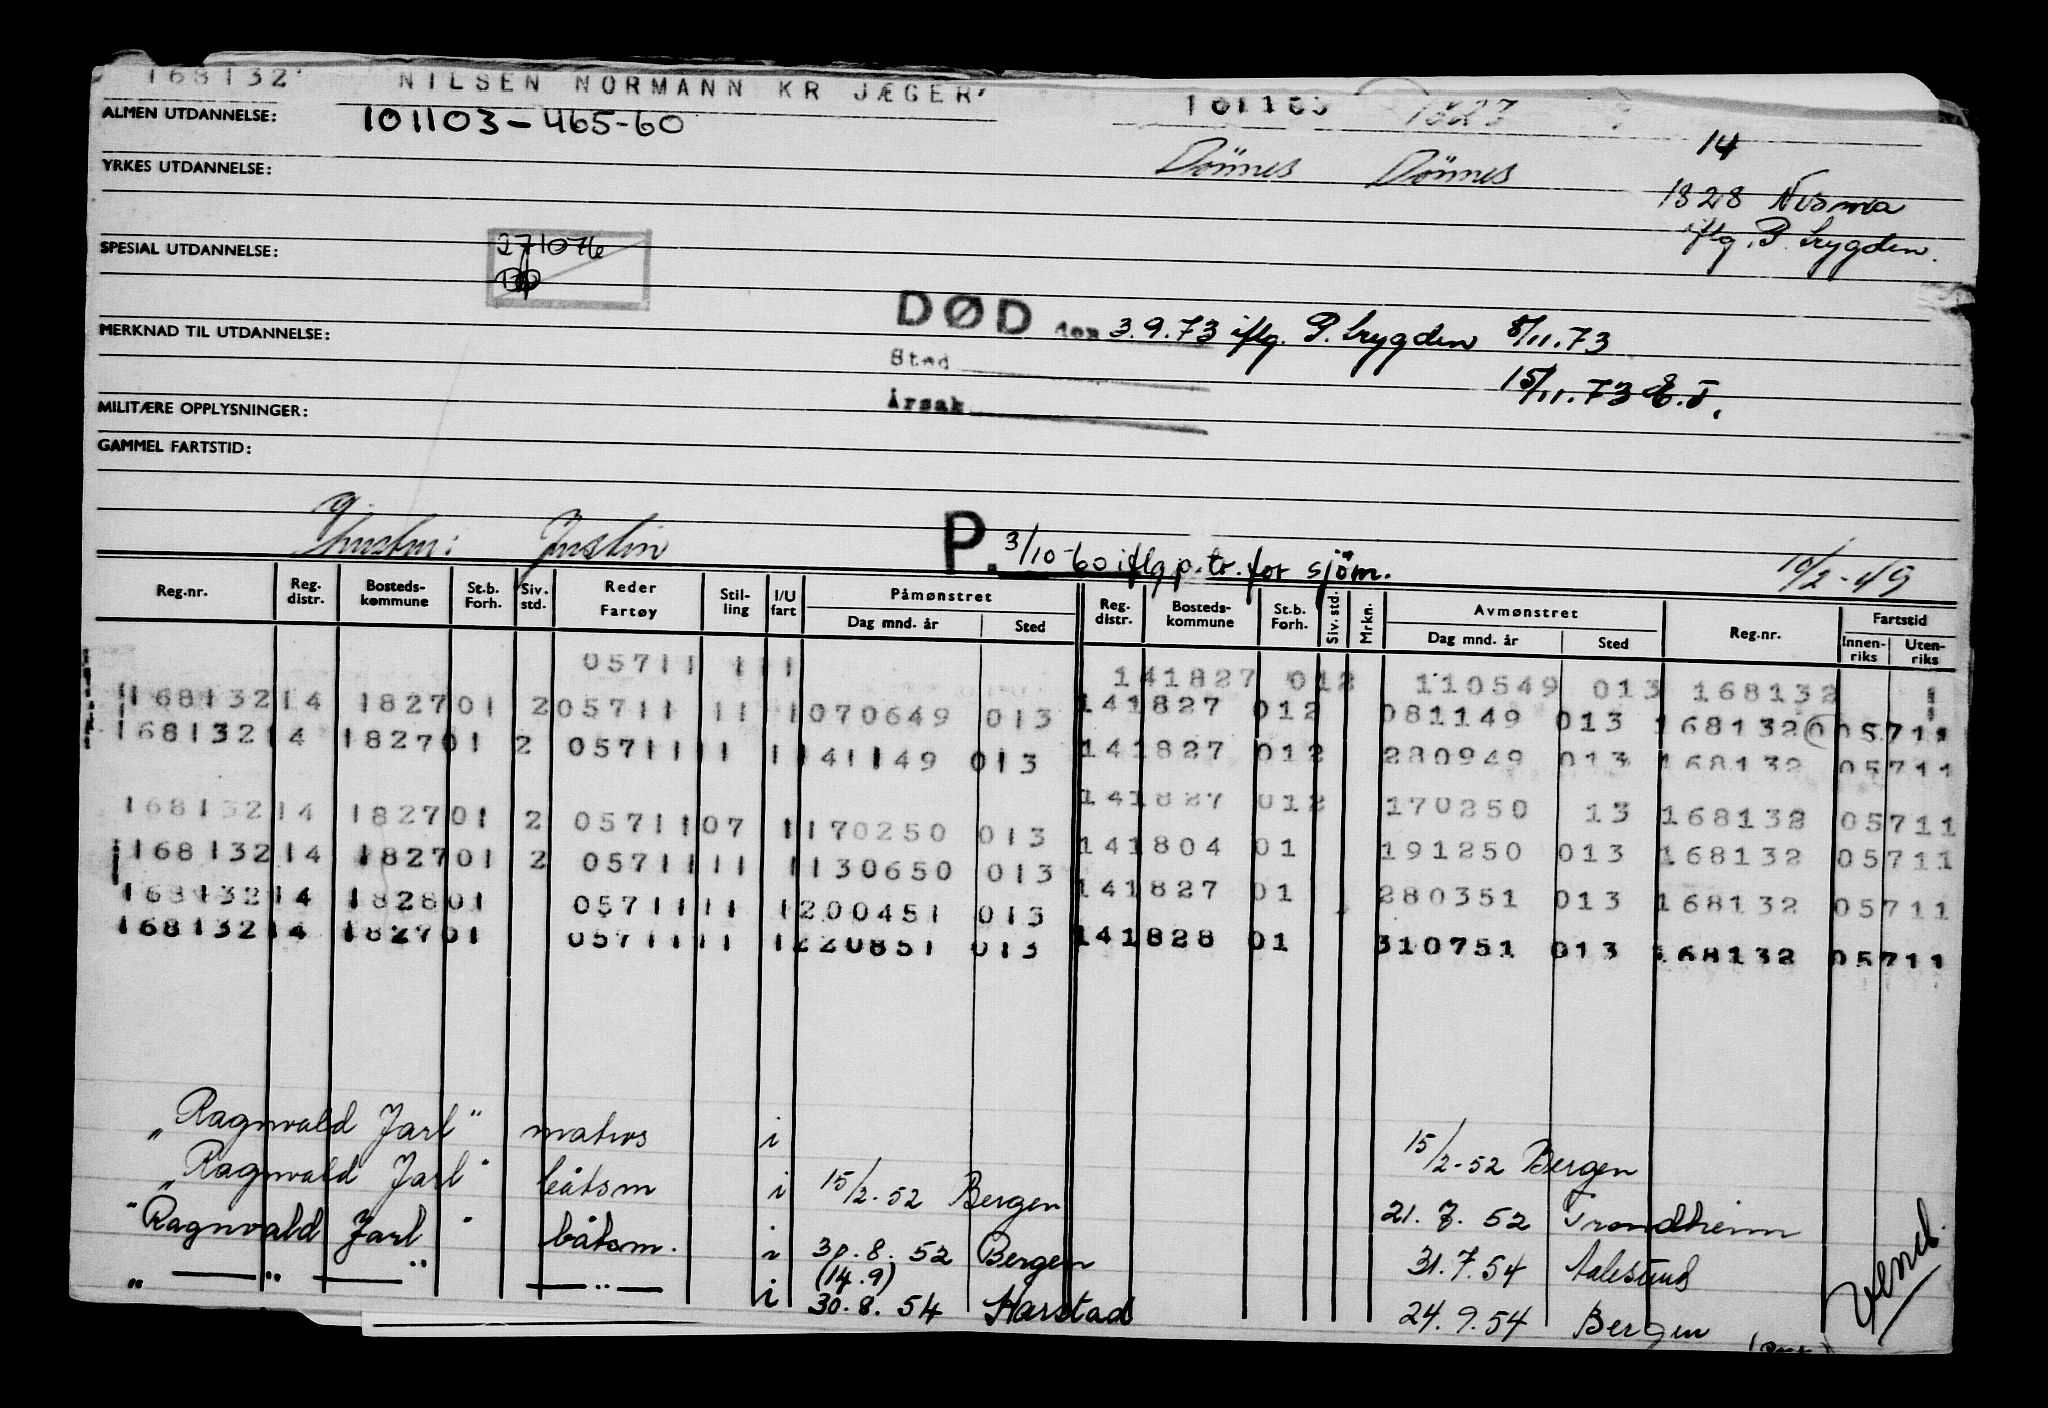 168132 NILSEN NORMANN KR JÆGER 101103 1827
ALMEN UTDANNELSE: 101103-465-60
14
YRKES UTDANNELSE: Dönnes Dönnes
1828 Nesna
SPESIAL UTDANNELSE: 271076 iflg. P. trygden.
DØD den 3.9.73 iflg. P. trygden 8/11.73
MERKNAD TIL UTDANNELSE:
Sted
15/11.73 E.T.
Årsak
MILITÆRE OPPLYSNINGER:
GAMMEL FARTSTID:
Justin
P. 3/10-60 iflg p.tr. for sjöm. 10/2-49
Reg.nr. Reg. distr. Bosteds-kommune St.b. Forh. Siv. std. Reder Fartøy Stil-ling I/U fart Påmønstret Dag mnd. år Sted Reg. distr. Bosteds-kommune St.b. Forh. Siv. std. Mrkn. Avmønstret Dag mnd. år Sted Reg.nr. Fartstid Innen-riks Uten-riks
05711 11 1 141827 012 110549 013 168132
168132 14 1827 01 2 05711 11 1 070649 013 141827 012 081149 013 168132 05711
168132 14 1827 01 2 05711 11 1 141149 013 141827 012 280949 013 168132 05711
141827 012 170250 13 168132 05711
168132 14 1827 01 2 05711 07 1 170250 013 141804 01 191250 013 168132 05711
168132 14 1827 01 2 05711 11 1 130650 013 141827 01 280351 013 168132 05711
168132 14 1828 01 05711 11 1 200451 013 141828 01 310751 013 168132 05711
168132 14 1827 01 05711 11 1 220851 013
„Ragnvald Jarl" matros i 15/2-52 Bergen
„Ragnvald Jarl" båtsm i 15/2.52 Bergen 21.7.52 Trondheim
"Ragnvald Jarl" båtsm. i 30.8.52 Bergen 31.7.54 Aalesund
(14.9)
„ — " — " — " — i 30.8.54 Harstad 24.9.54 Bergen
Vend